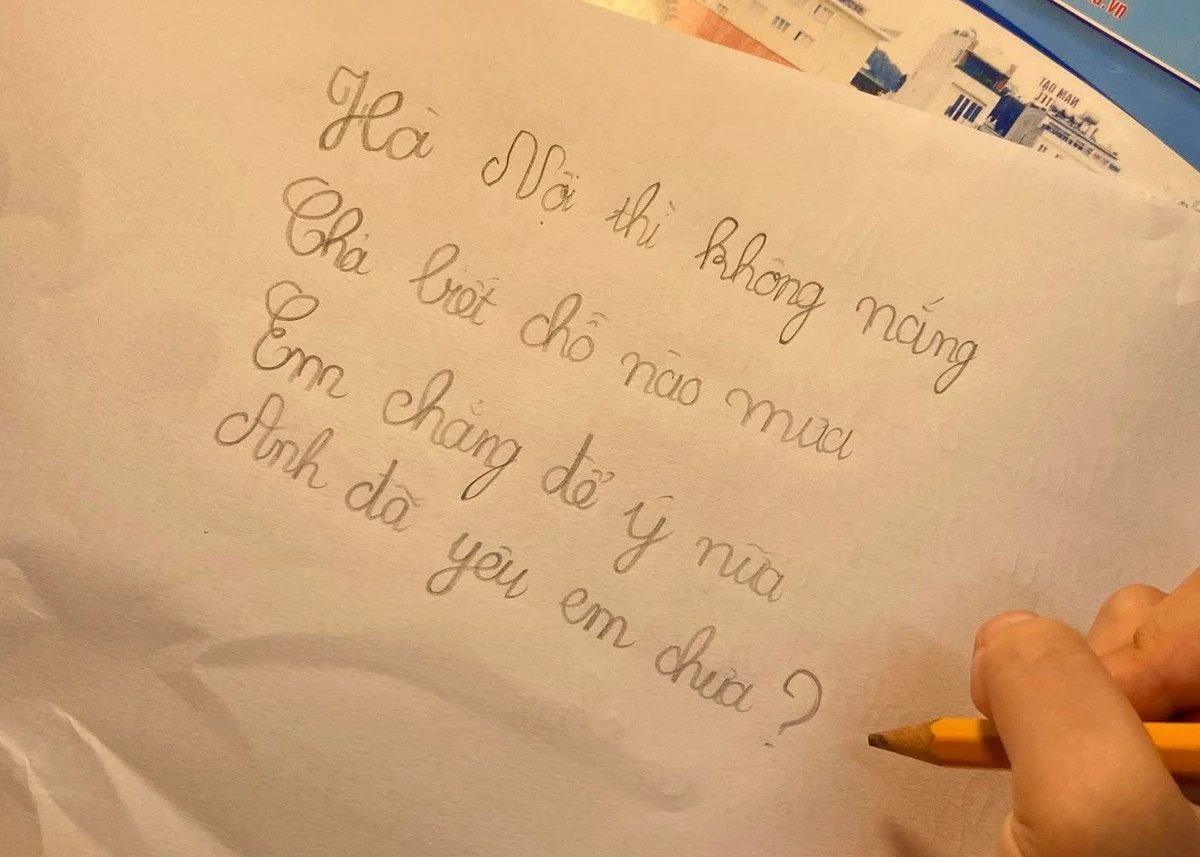 Hà Nội thì không nắng
Chả biết chỗ nào mưa
Em chẳng để ý nữa
Anh đã yêu em chưa?
NAM ĐẠT